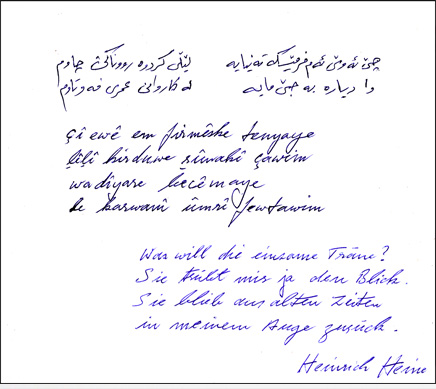 چی ئەوێ ئەم فرمێسکە تەنیایە لێڵی کردوە رووناکی چاوم
وا دیارە بە جێ مایە لە کاروانی عمری فەوتاوم
çî ewê em firmêske tenyaye
lêlî kirduwe rûnakî çawim
wadîyare becêmaye
le karwanî ûmrî fewtawim
Was will die einsame Träne?
Sie trübt mir ja den Blick.
Sie blieb aus alten Zeiten
in meinem Auge zurück.
Heinrich Heine